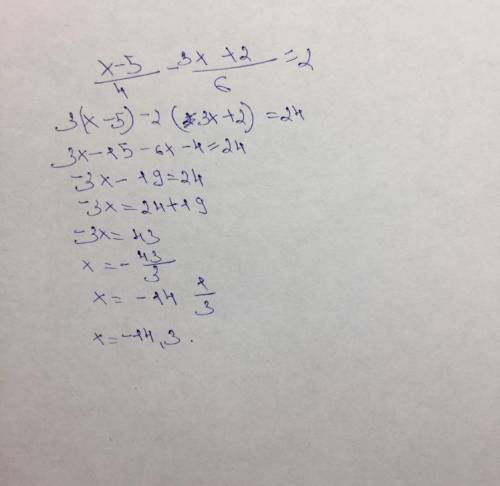 x-5/4 - 3x+2/6 = 2
3(x-5)-2(3x+2)=24
3x-15-6x-4=24
-3x-19=24
-3x=24+19
-3x=43
x=-43/3
x=-14 1/3
x=-14,3.